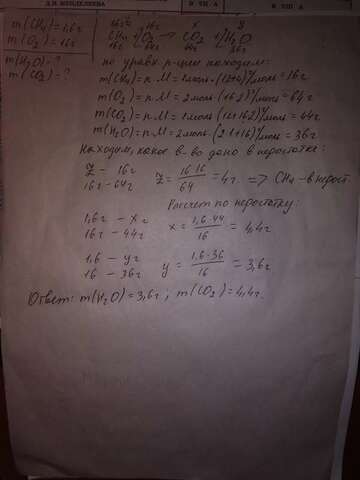 Д.И. МЕНДЕЛЕЕВА VII A VIII A
m(CH₄)=1,6г
m(O₂)=16г
m(H₂O)-?
m(CO₂)-?
1,6г 16г x y
CH₄+2O₂ → CO₂+2H₂O
16г 64г 44г 36г
по уравн. р-ции находим:
m(CH₄)=n·M=1моль·(12+4)г/моль=16г
m(O₂)=n·M=2моль·(16·2)г/моль=64г
m(CO₂)=n·M=1моль(12+16·2)г/моль=44г
m(H₂O)=n·M=2моль(2·1+16)г/моль=36г
Находим, какое в-во дано в недостатке:
z – 16г
16г-64г z=16·16/64=4г => CH₄-в недост.
Расчет по недостатку:
1,6г – xг
16г – 44г x=1,6·44/16=4,4г
1,6 – yг
16 – 36г y=1,6·36/16=3,6г
Ответ: m(H₂O)=3,6г; m(CO₂)=4,4г.